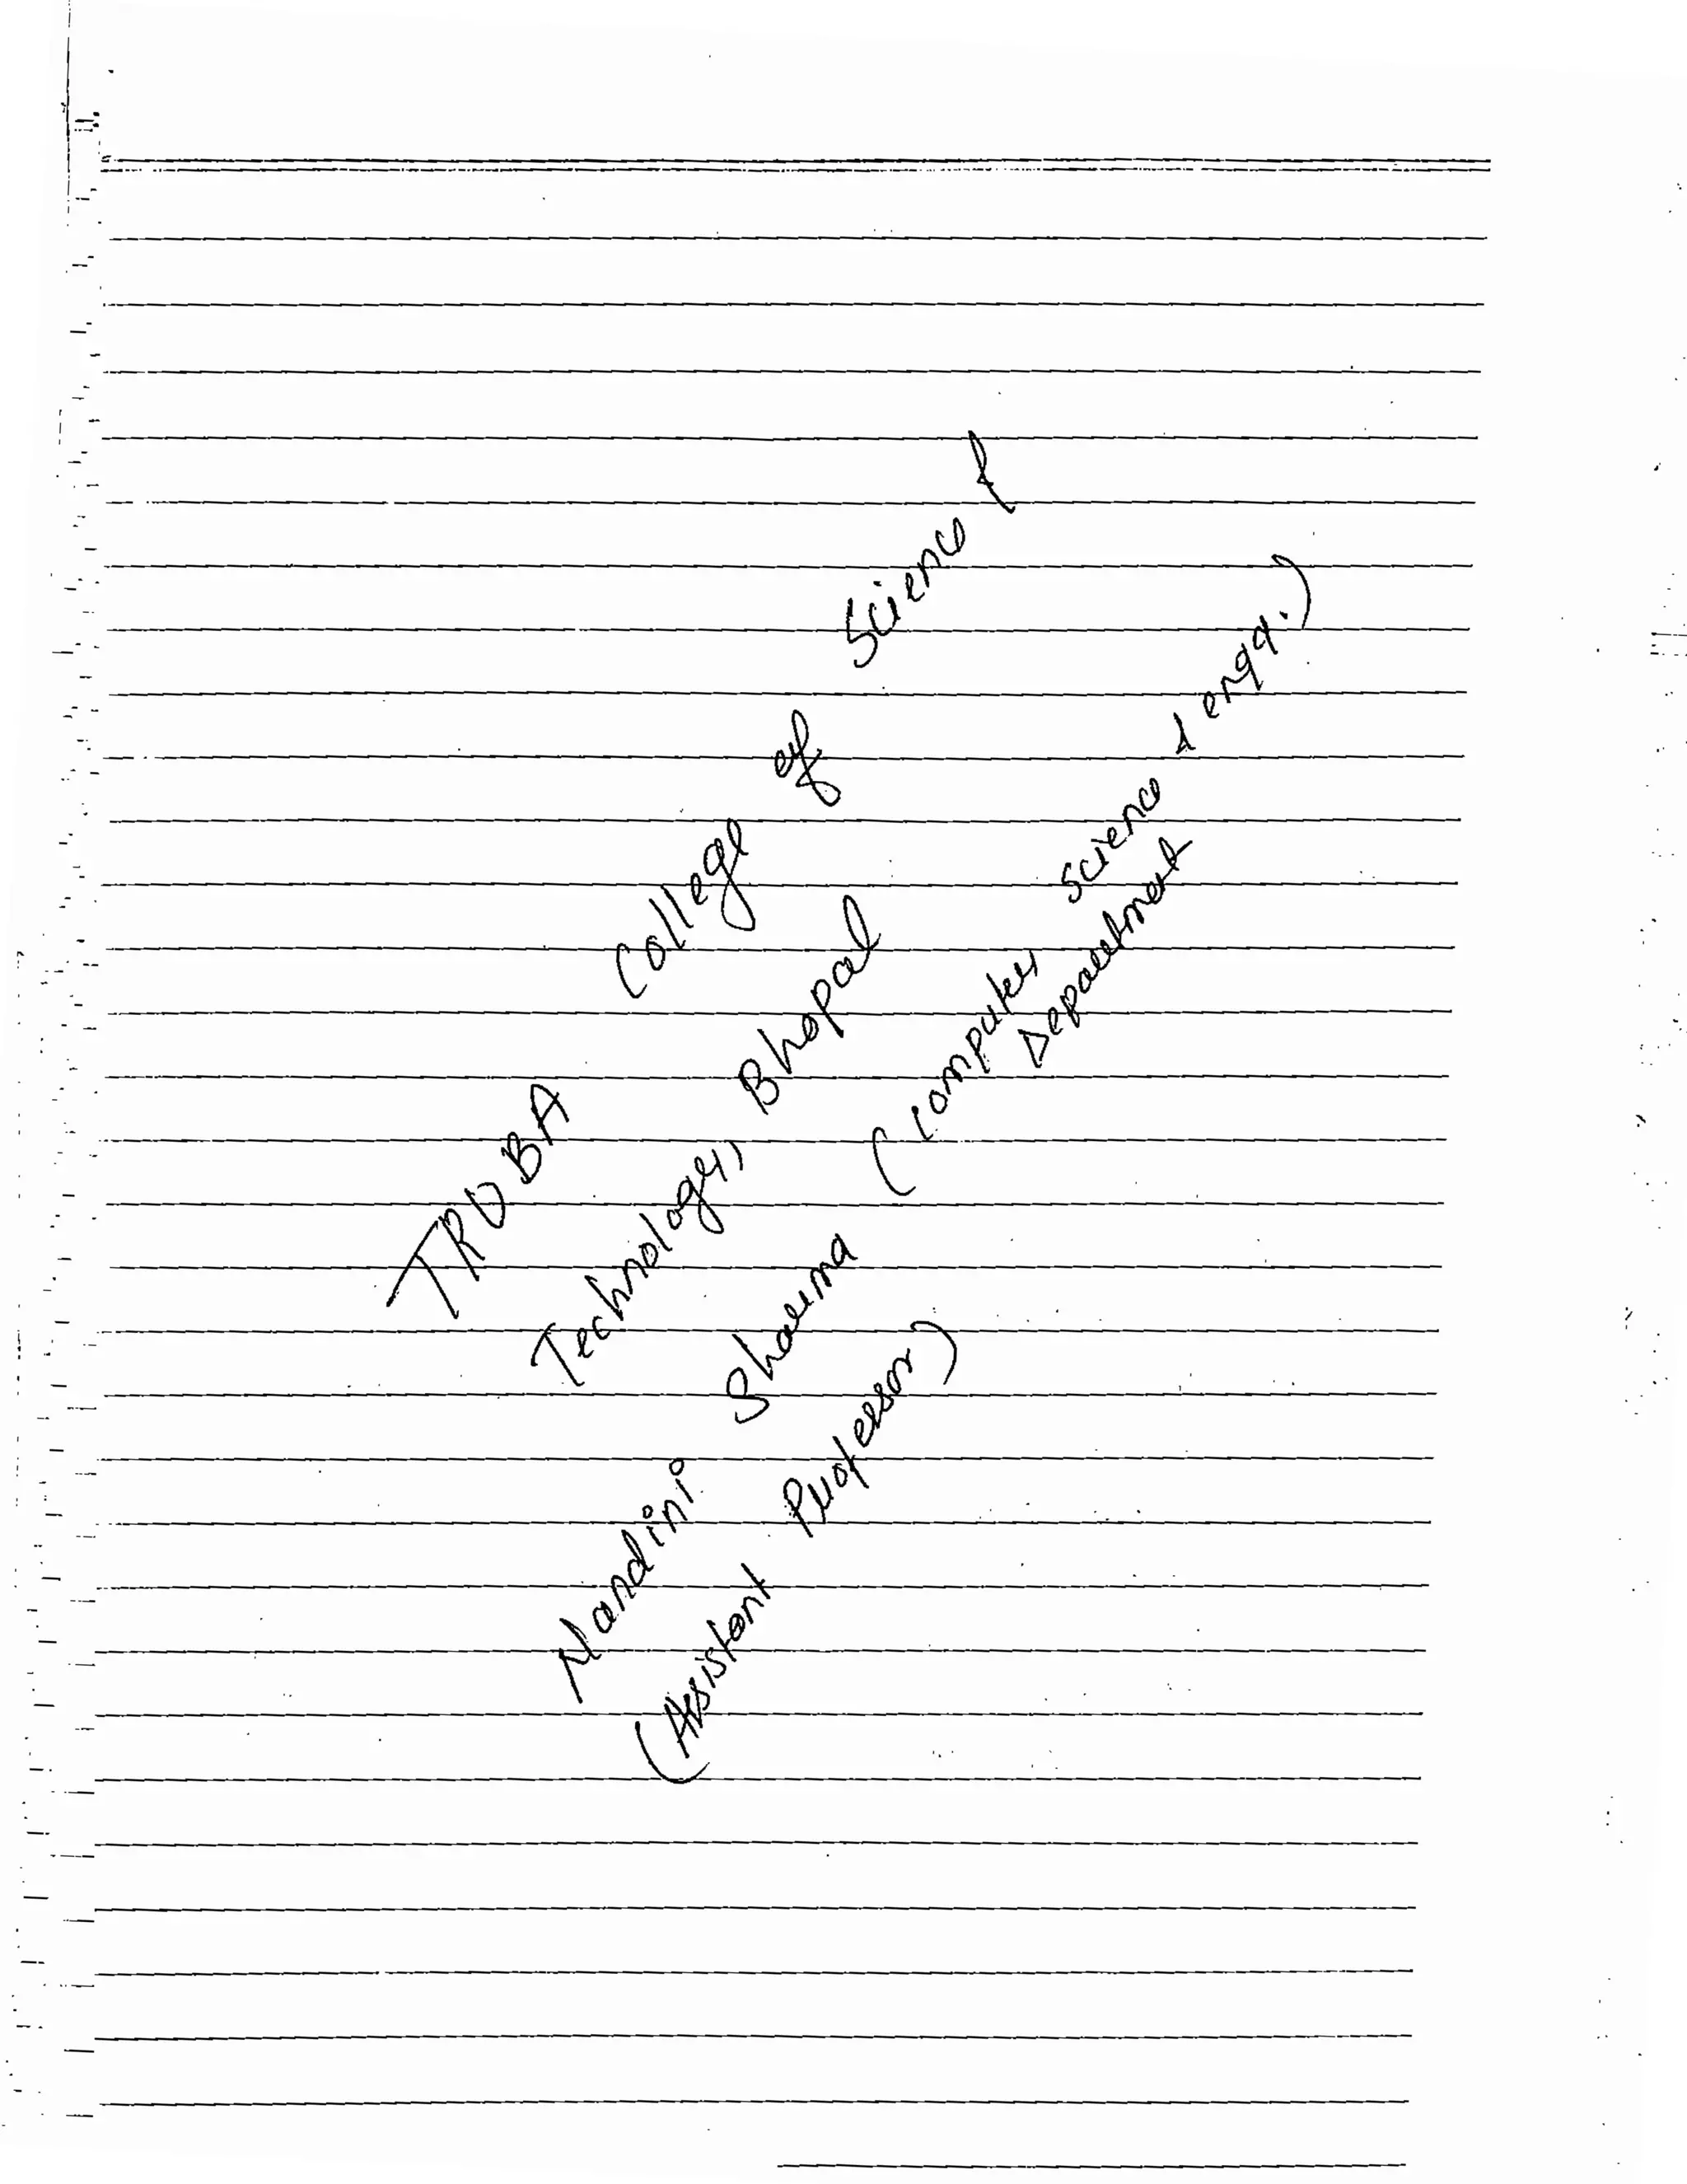 TRUBA College of Science &
Technology, Bhopal
Nandini Sharma (Computer Science & engg.)
(Assistant Professor) Department